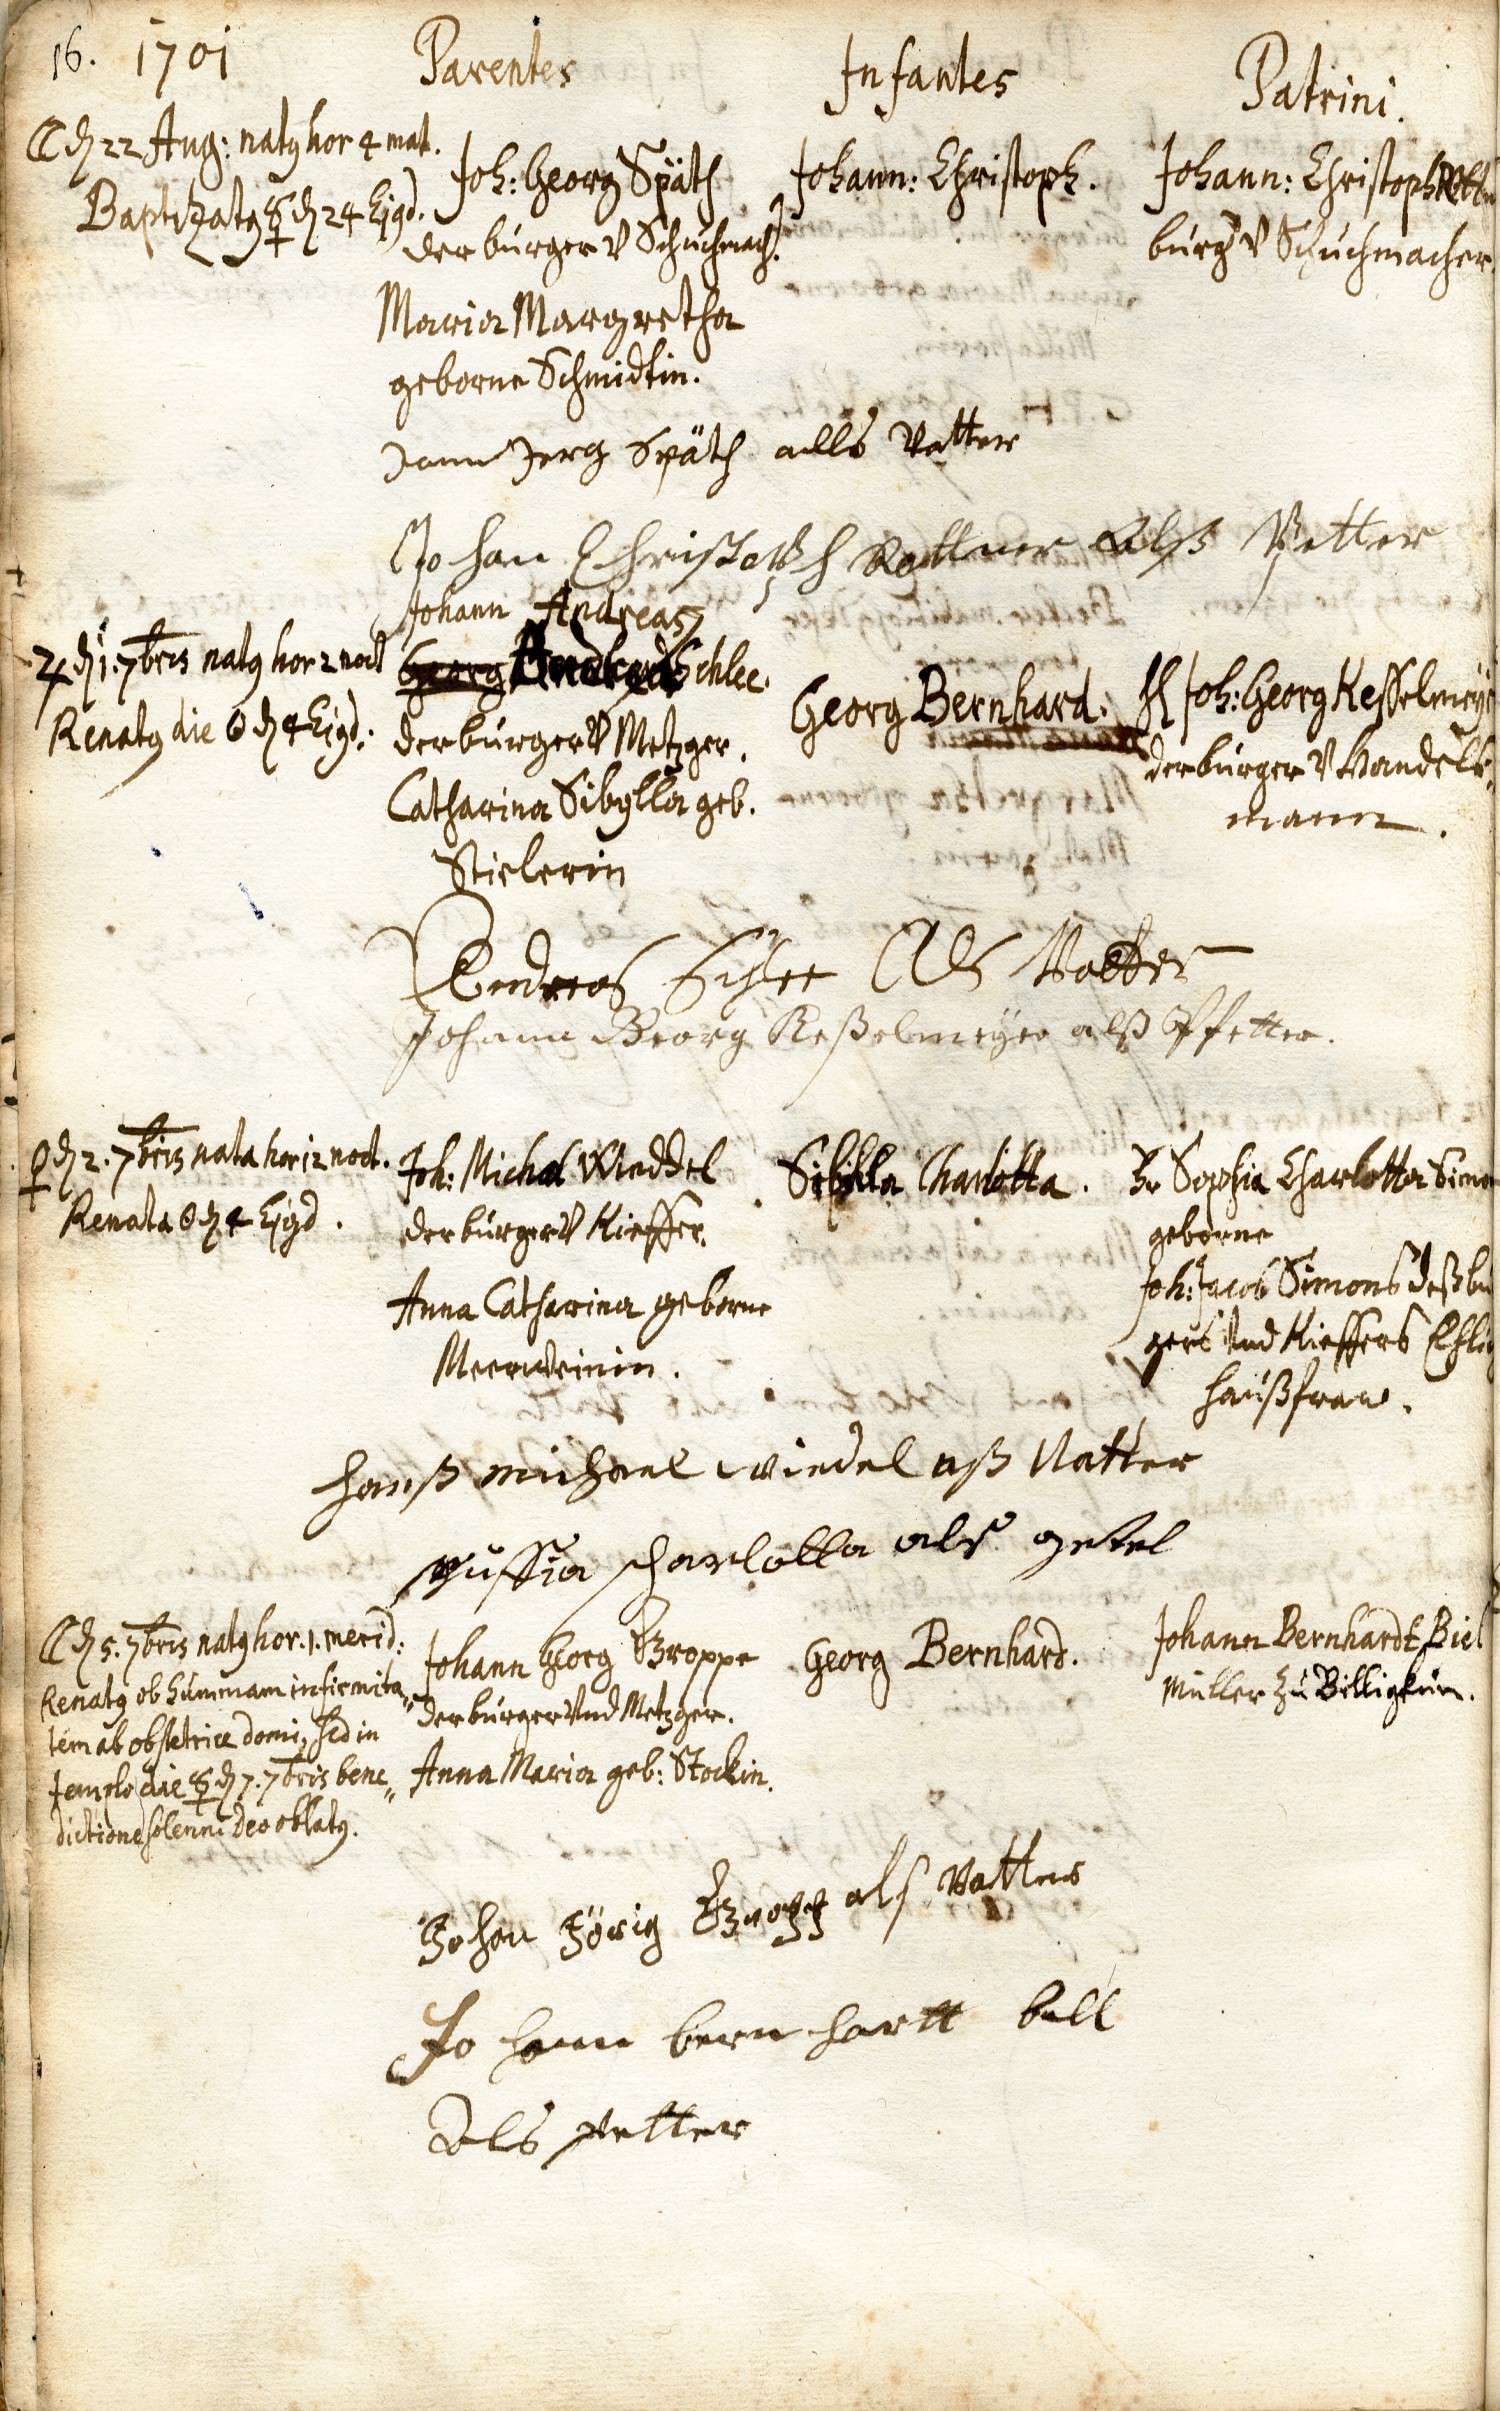 16. 1701
Parentes
Infantes
Patrini.
☾ d 22 Aug: natq hor 4 mat.
Baptizatq ☿ d 24 Ejqd.
Joh: Georg Späth
der bürger v Schuhmach.
Maria Margretha
geborne Schmidtin.
Johann: Christoph.
Johann: Christoph Rottn
bürg v Schuhmacher.
Jann Jerg Späth alls Vatter
Johan Christoph Rottner Alß Pfetter
♃ d 1. 7bris natq hor 2 noct
Renatq die ☉ d 4 Ejqd:
Johann Andreas
Georg Andreas Schlee.
der bürger v Metzger.
Catharina Sibylla geb.
Stielerin
Georg Bernhard.
H Joh: Georg Kesselmeye
der bürger v Handels-
mann.
Andreas Schlee Als Vatter
Johann Georg Keßelmeyer alß Pfetter.
♀ d 2. 7bris nata hor 12 noct.
Renata ☉ d 4 Ejqd.
Joh: Michael Wieddel
der bürger v Kieffer.
Anna Catharina geborne
Meerweinin.
Sibylla Charlotta.
Fr Sophia Charlotta Simon
geborne
Joh: Jacob Simons deß bu
gers Und Kieffers Ehlig
haußfraw.
hanß michael wiedel aß Vatter
suffia scharlotta als getel
☾ d 5. 7bris natq hor. 1. merid:
Renatq ob summam infirmita-
tem ab obstetrice domi, sed in
templo die ☿ d 7. 7bris bene-
dictione solenni Deo oblatq.
Johann Georg Groppe
der bürger Und Metzger.
Anna Maria geb: Stockin.
Georg Bernhard.
Johann Bernhardt Biel
Müller zu Billigheim.
Johan Jörig Gropp als Vatter
Johann bernhartt bill
Als petter